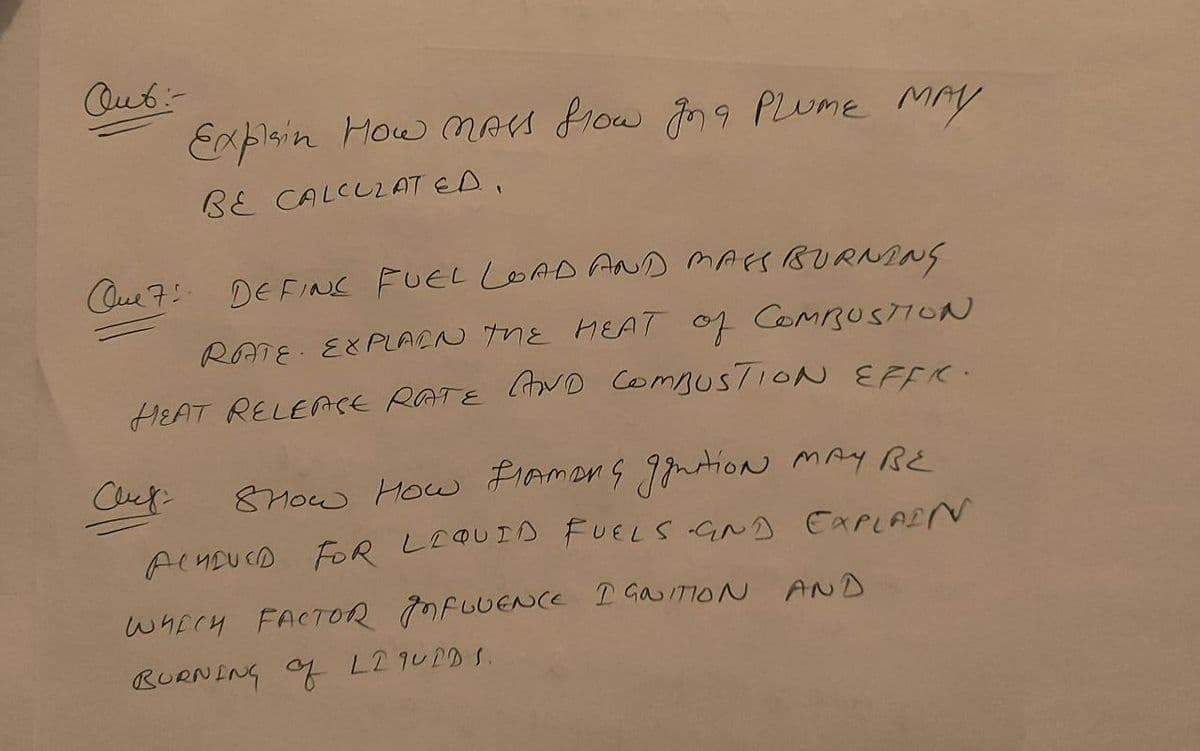 Que6:-
Explain How MASS flow In a PLUME MAY
BE CALCULATED.
Que7:- DEFINE FUEL LOAD AND MASS BURNING
RATE. EXPLAIN THE HEAT of COMBUSTION
HEAT RELEASE RATE AND COMBUSTION EFFK.
SHOW HOW FlAMING IgnitioN MAY BE
ACHIEVED FOR LIQUID FUELS AND EXPLAIN
WHICH FACTOR INFLUENCE IGNITION AND
BURNING of LIQUIDS.